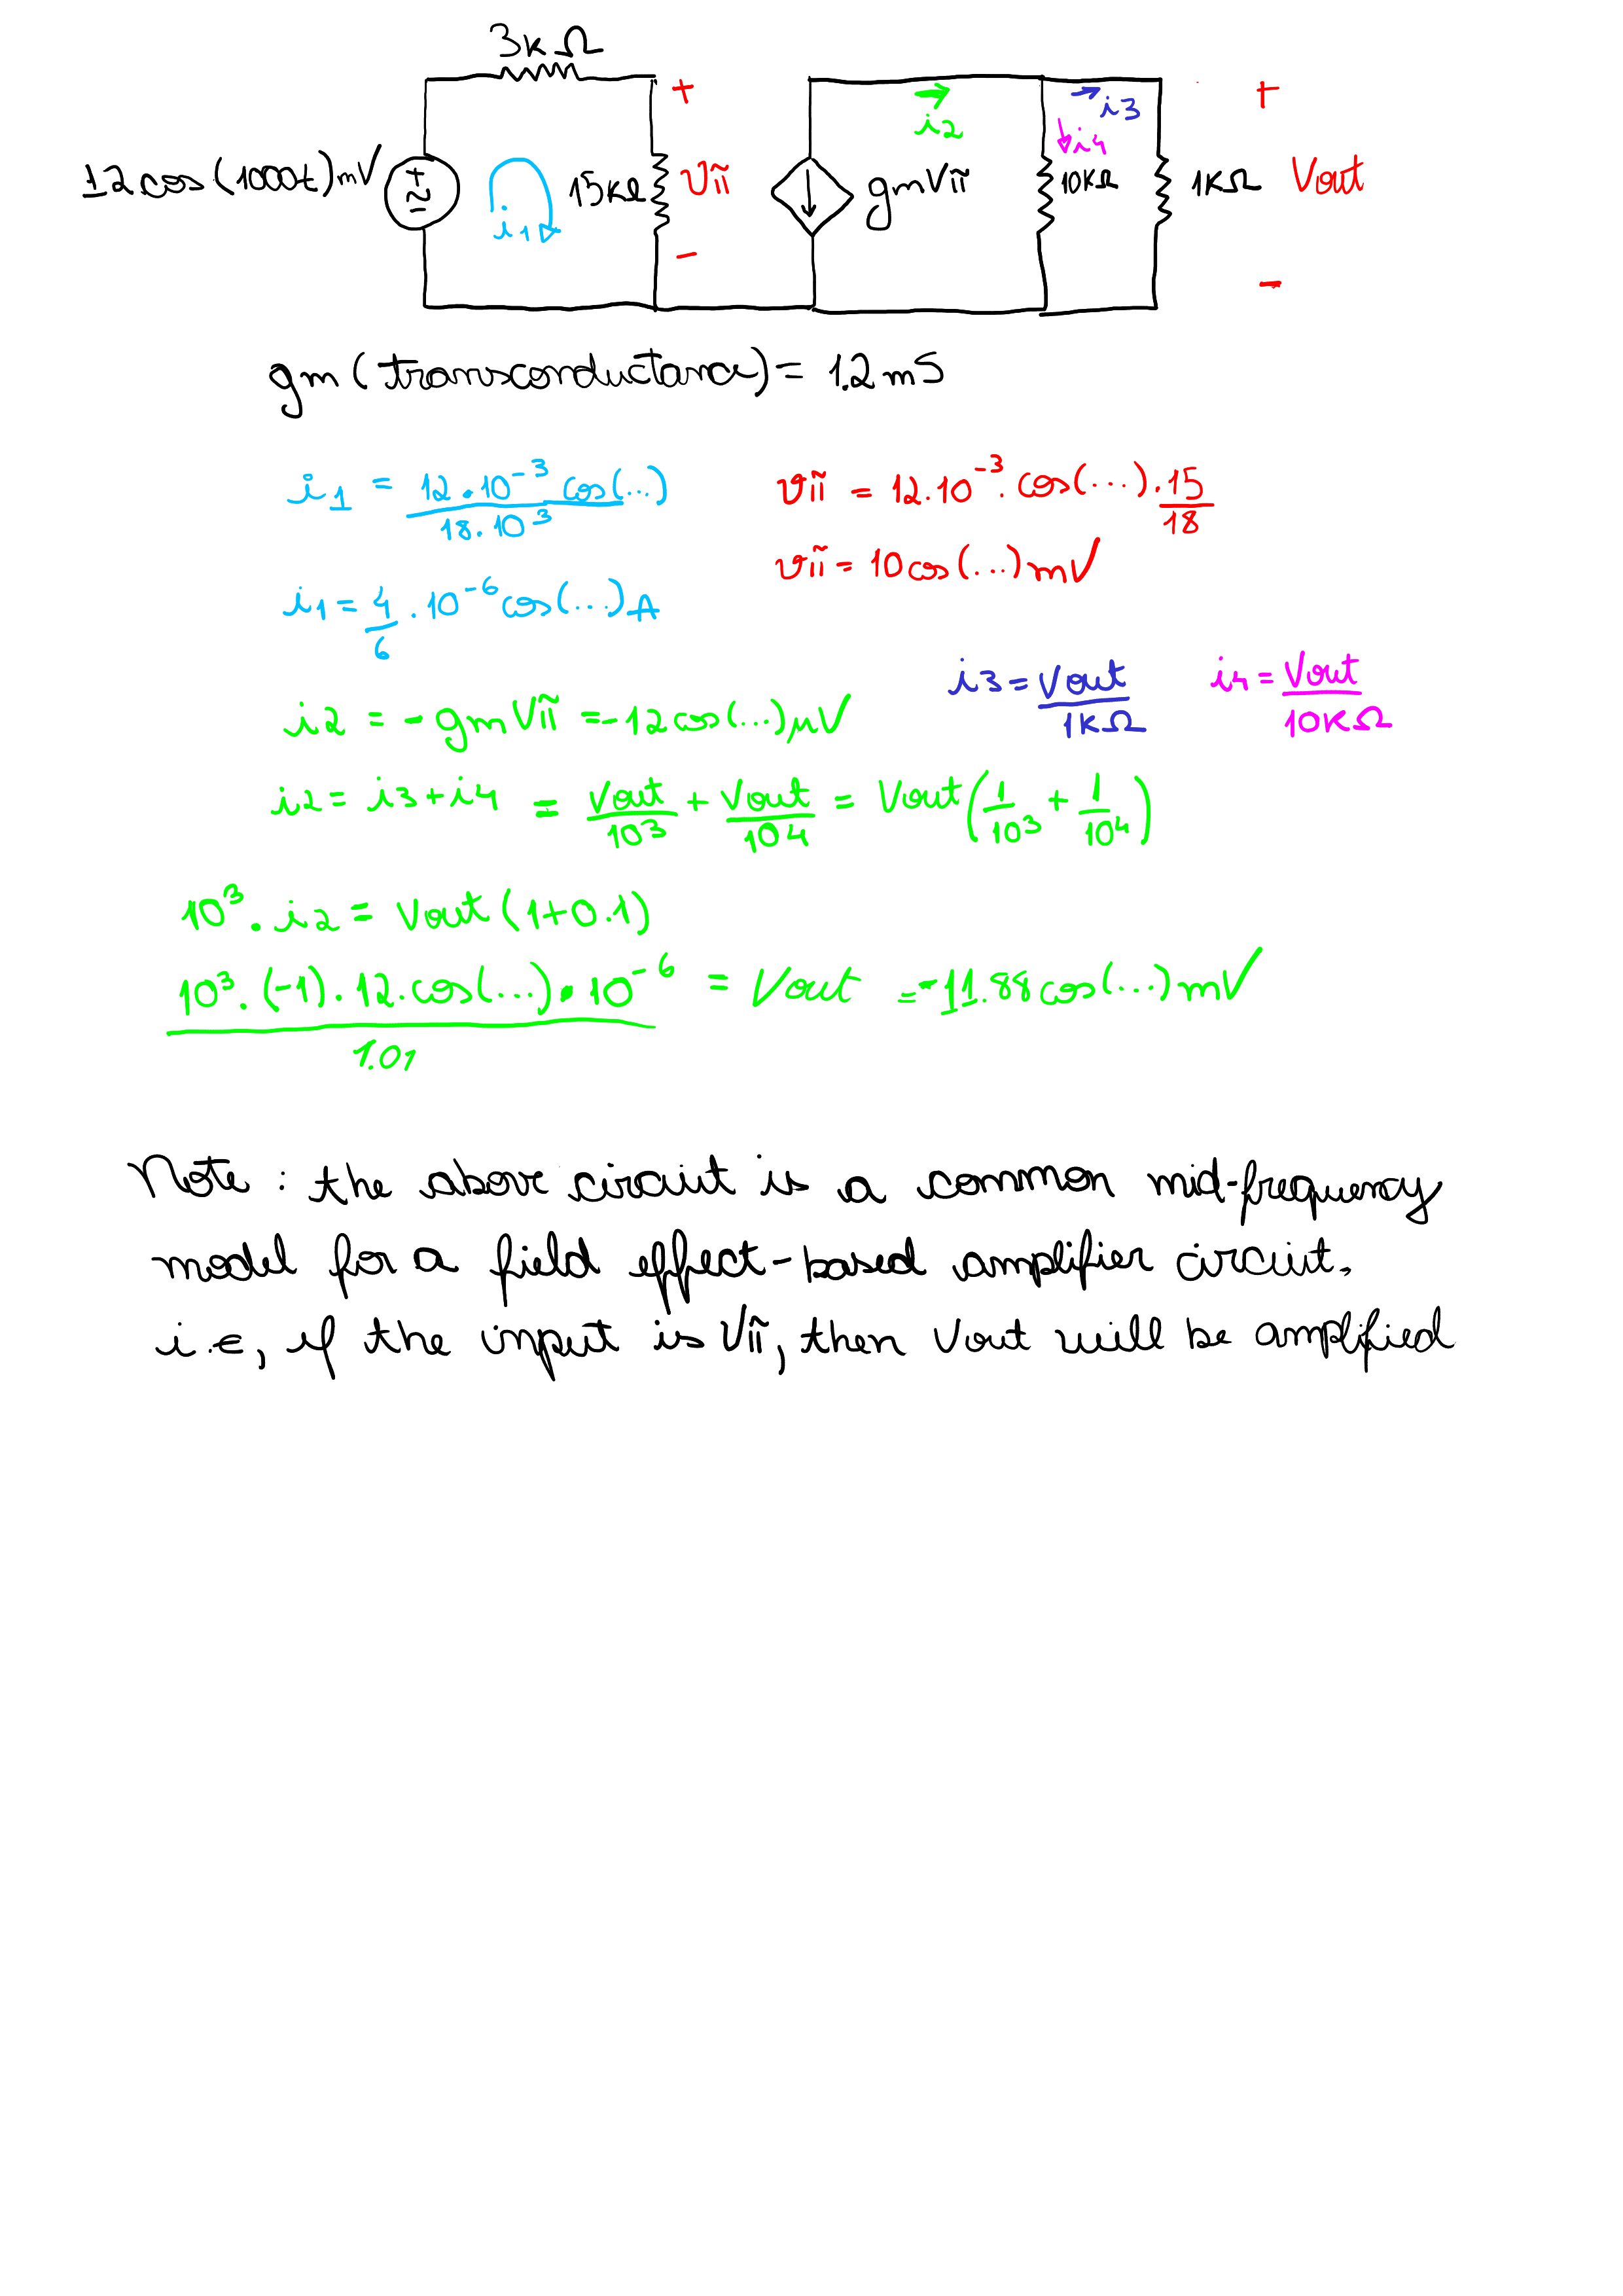 3kΩ
12cos(1000t)mV
+
~
-
i1
15kΩ
+
Vπ
-
gmVπ
i2
i3
i4
10KΩ
1KΩ
+
Vout
-
gm(transconductance) = 1.2mS
i1 = 12.10^-3 cos(...) / 18.10^3
vπ = 12.10^-3. cos(...).15/18
vπ = 10cos(...)mV
i1 = 4/6 . 10^-6 cos(...)A
i3 = Vout/1KΩ
i4 = Vout/10KΩ
i2 = -gmVπ = -12cos(...)μV
i2 = i3+i4 = Vout/10^3 + Vout/10^4 = Vout(1/10^3 + 1/10^4)
10^3.i2 = Vout(1+0.1)
10^3.(-1).12.cos(...).10^-6 / 1.01 = Vout = -11.88cos(...)mV
Note : the above circuit is a common mid-frequency
model for a field effect-based amplifier circuit.
i.e, if the input is Vπ, then Vout will be amplified